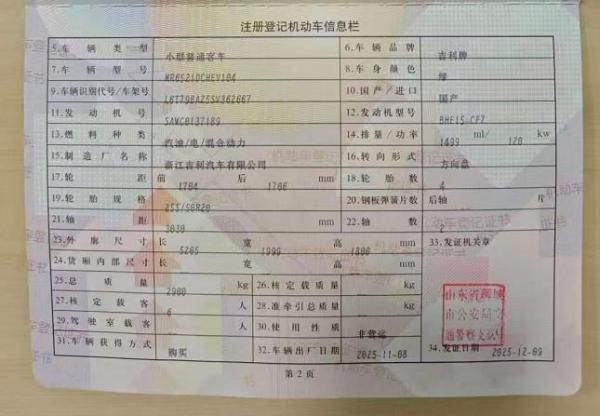 注册登记机动车信息栏
5.车辆类型 小型普通客车 6.车辆品牌 吉利牌
7.车辆型号 MR6521DCHEV104 8.车身颜色 绿
9.车辆识别代号/车架号 L6T79BAZ5SV362667 10.国产/进口 国产
11.发动机号 SAWC0137189 12.发动机型号 BHF15-CFZ
13.燃料种类 汽油/电/混合动力 14.排量/功率 1499 ml/ 120 kw
15.制造厂名称 浙江吉利汽车有限公司 16.转向形式 方向盘
17.轮距 前 1704 后 1706 mm 18.轮胎数 4
19.轮胎规格 255/50R20 20.钢板弹簧片数 后轴 片
21.轴距 3030 mm 22.轴数 2
23.外廓尺寸 长 5205 宽 1999 高 1800 mm 33.发证机关章
24.货厢内部尺寸 长 宽 高 mm
25.总质量 2900 kg 26.核定载质量 kg
27.核定载客 6 人 28.准牵引总质量 kg
29.驾驶室载客 人 30.使用性质 非营运
31.车辆获得方式 购买 32.车辆出厂日期 2025-11-08 34.发证日期 2025-12-09
山东省聊城
市公安局交
通警察支队
第2页